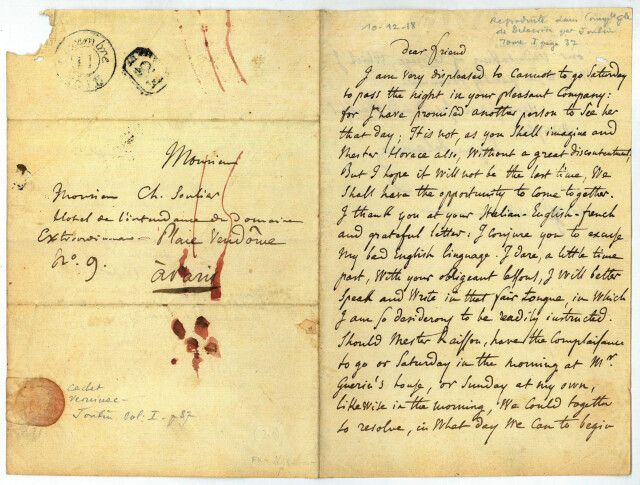 10-12-18
Reproduite dans
de Delacroix par Joubin
Tome I page 27
Monsieur
Monsieur Ch. Soulier
Hotel de l'intendance du Domaine
Extraordinaire Place Vendôme
No. 9.
à Paris
cadet
Joubin vol: I - p 27
dear friend
I am very displeased to cannot to go Saturday
to pass the night in your pleasant Company:
for I have promised another person to See her
that day; It is not, as you Shall imagine and
Mester Horace also, Without a great discontentment,
But I hope it will not be the last time, We
Shall have the opportunity to Come together.
I thank you at your Italian-English-french
and grateful letter: I conjure you to excuse
my bad English language. I dare, a little time
past, With your obligeant lessons, I will better
Speak and Write in that fair tongue, in Which
I am so desiderous to be readily instructed.
Should Mester Raisson, have the Complaisance
to go or Saturday in the morning at Mr.
Guerin's house, or Sunday at my own,
likeWise in the morning, We Could together
to resolve, in What day We Can to begin